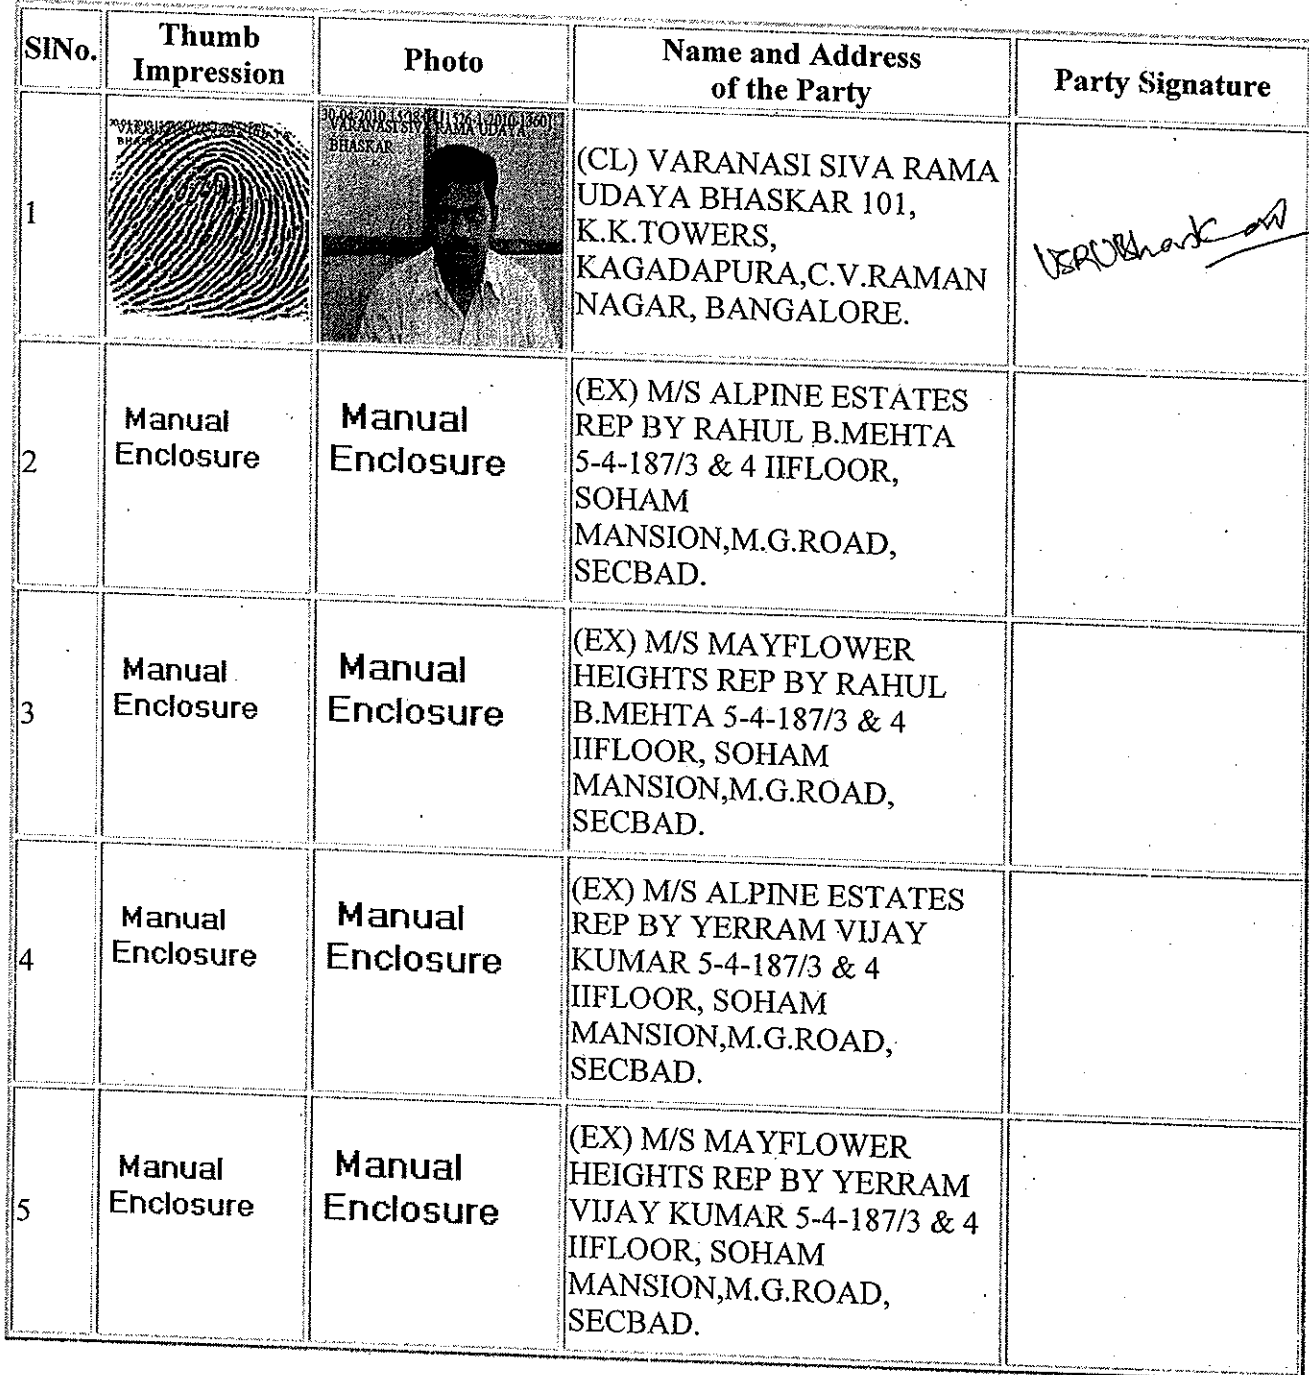 SlNo.
Thumb
Impression
Photo
Name and Address
of the Party
Party Signature
1
VARANASI SIVA RAMA UDAYA
BHASKAR
(CL) VARANASI SIVA RAMA
UDAYA BHASKAR 101,
K.K.TOWERS,
KAGADAPURA,C.V.RAMAN
NAGAR, BANGALORE.
2
Manual
Enclosure
Manual
Enclosure
(EX) M/S ALPINE ESTATES
REP BY RAHUL B.MEHTA
5-4-187/3 & 4 IIFLOOR,
SOHAM
MANSION,M.G.ROAD,
SECBAD.
3
Manual
Enclosure
Manual
Enclosure
(EX) M/S MAYFLOWER
HEIGHTS REP BY RAHUL
B.MEHTA 5-4-187/3 & 4
IIFLOOR, SOHAM
MANSION,M.G.ROAD,
SECBAD.
4
Manual
Enclosure
Manual
Enclosure
(EX) M/S ALPINE ESTATES
REP BY YERRAM VIJAY
KUMAR 5-4-187/3 & 4
IIFLOOR, SOHAM
MANSION,M.G.ROAD,
SECBAD.
5
Manual
Enclosure
Manual
Enclosure
(EX) M/S MAYFLOWER
HEIGHTS REP BY YERRAM
VIJAY KUMAR 5-4-187/3 & 4
IIFLOOR, SOHAM
MANSION,M.G.ROAD,
SECBAD.